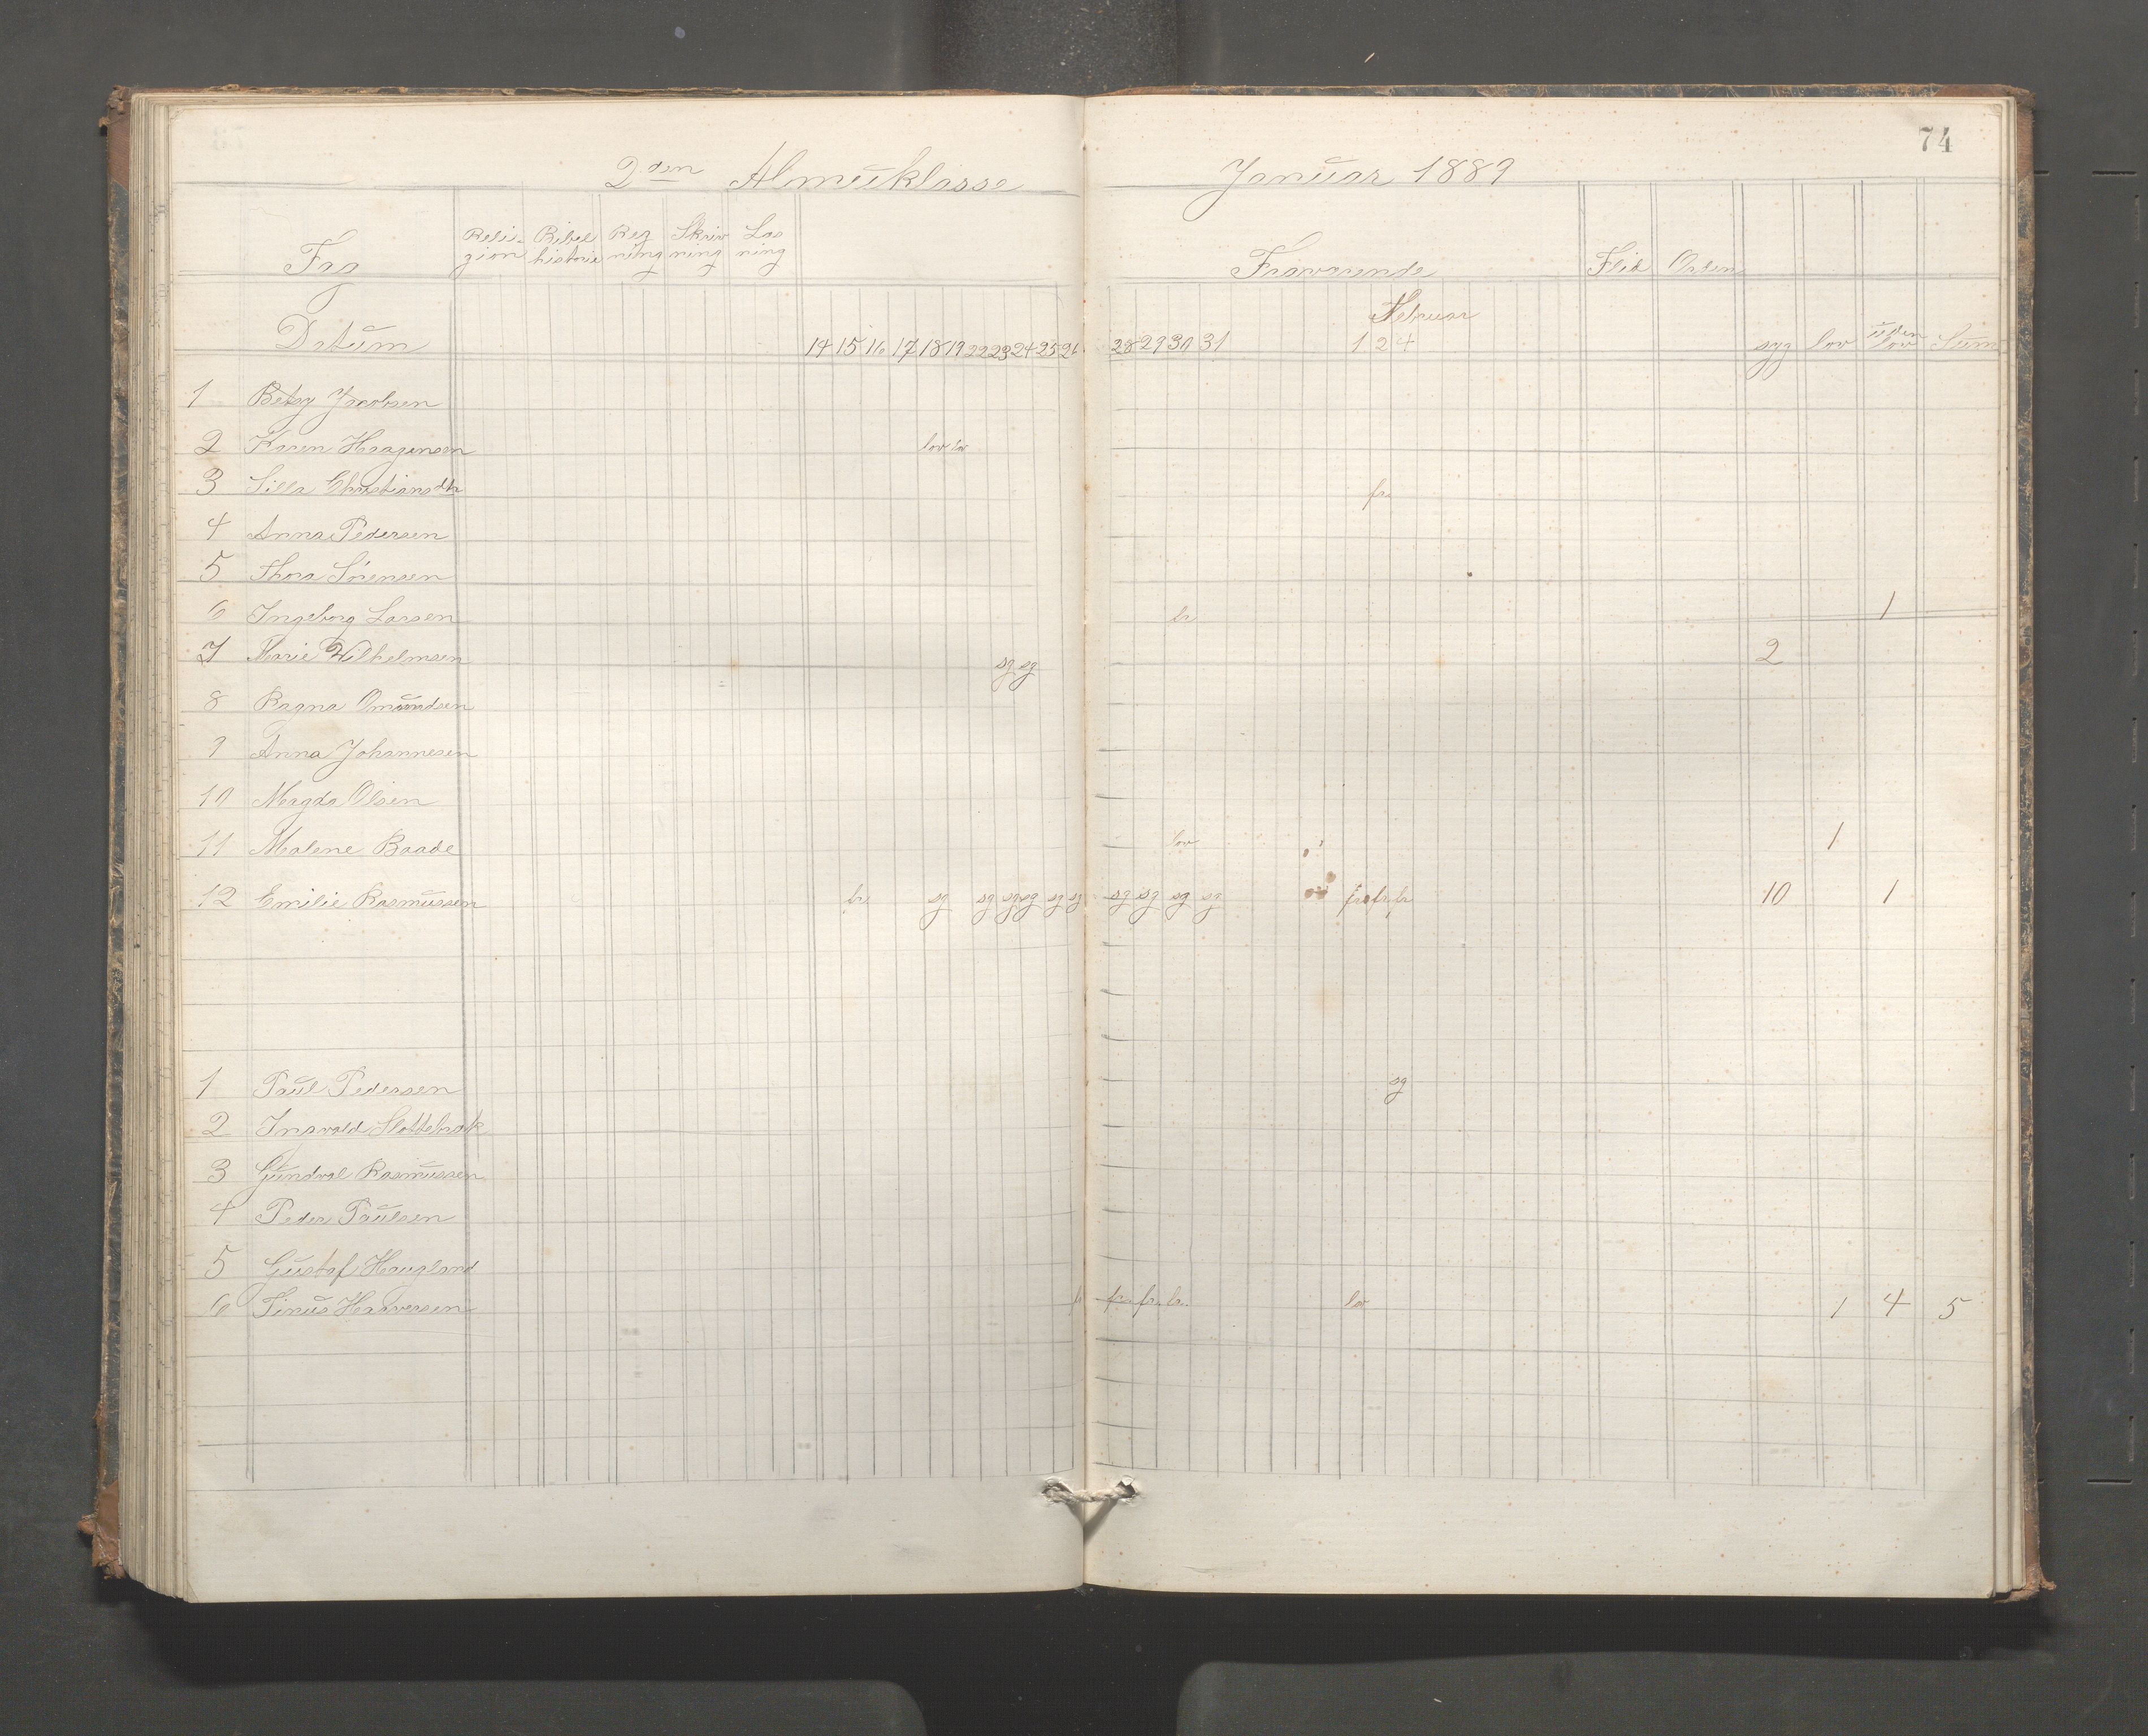 74
2den Almueklasse Januar 1889
Fag Religion Bibelhistorie Regning Skrivning Læsning Fraværende Flid Orden
Februar
Datum 14 15 16 17 18 19 22 23 24 25 26 28 29 30 31 1 2 4 syg lov uden lov Sum
1 Betsy Jacobsen
2 Karen Haagensen lov lov
3 Silla Christiansdtr fr.
4 Anna Pedersen
5 Thora Sørensen
6 Ingeborg Larsen fr 1
7 Marie Wilhelmsen sg sg 2
8 Ragna Omundsen
9 Anna Johannesen
10 Magda Olsen
11 Malene Baade lov 1
12 Emilie Rasmussen fr. sg sg sg sg sg sg sg sg sg sg fr fr fr 10 1
1 Paul Pedersen sg
2 Ingvald Slottebrak
3 Gundval Rasmussen
4 Peder Paulsen
5 Gustaf Haugland
6 Sinus Halvorsen fr. fr. fr. lov 1 4 5